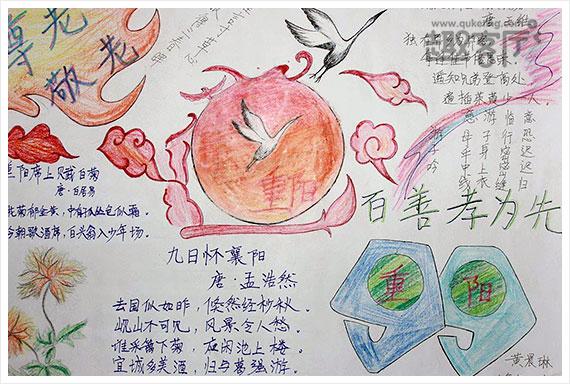 尊老
敬老
www.quketing.com
趣客厅
独在异乡为异客
遥知兄弟登高处
遍插茱萸少一人
游子吟
慈母手中线
游子身上衣
临行密密缝
意恐迟迟归
重阳
百善孝为先
重阳席上赋白菊
唐·白居易
今朝歌酒席，白头翁入少年场。
九日怀襄阳
唐·孟浩然
去国似如昨，倏然经杪秋。
岘山不可见，风景令人愁。
谁采篱下菊，应闲池上楼。
宜城多美酒，归与葛强游。
重
阳
黄晨琳